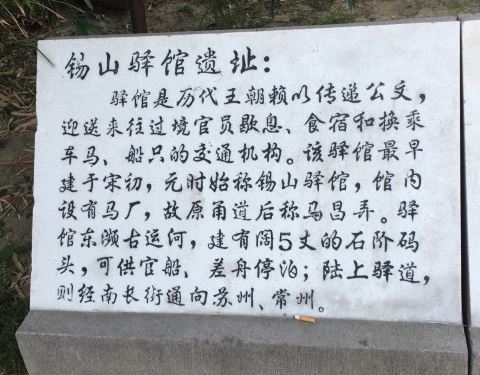 锡山驿馆遗址：
驿馆是历代王朝赖以传递公文，
迎送来往过境官员歇息、食宿和换乘
车马、船只的交通机构。该驿馆最早
建于宋初，元时始称锡山驿馆，馆内
设有马厂，故原甬道后称马昌弄。驿
馆东濒古运河，建有阔5丈的石阶码
头，可供官船、差舟停泊；陆上驿道，
则经南长街通向苏州、常州。